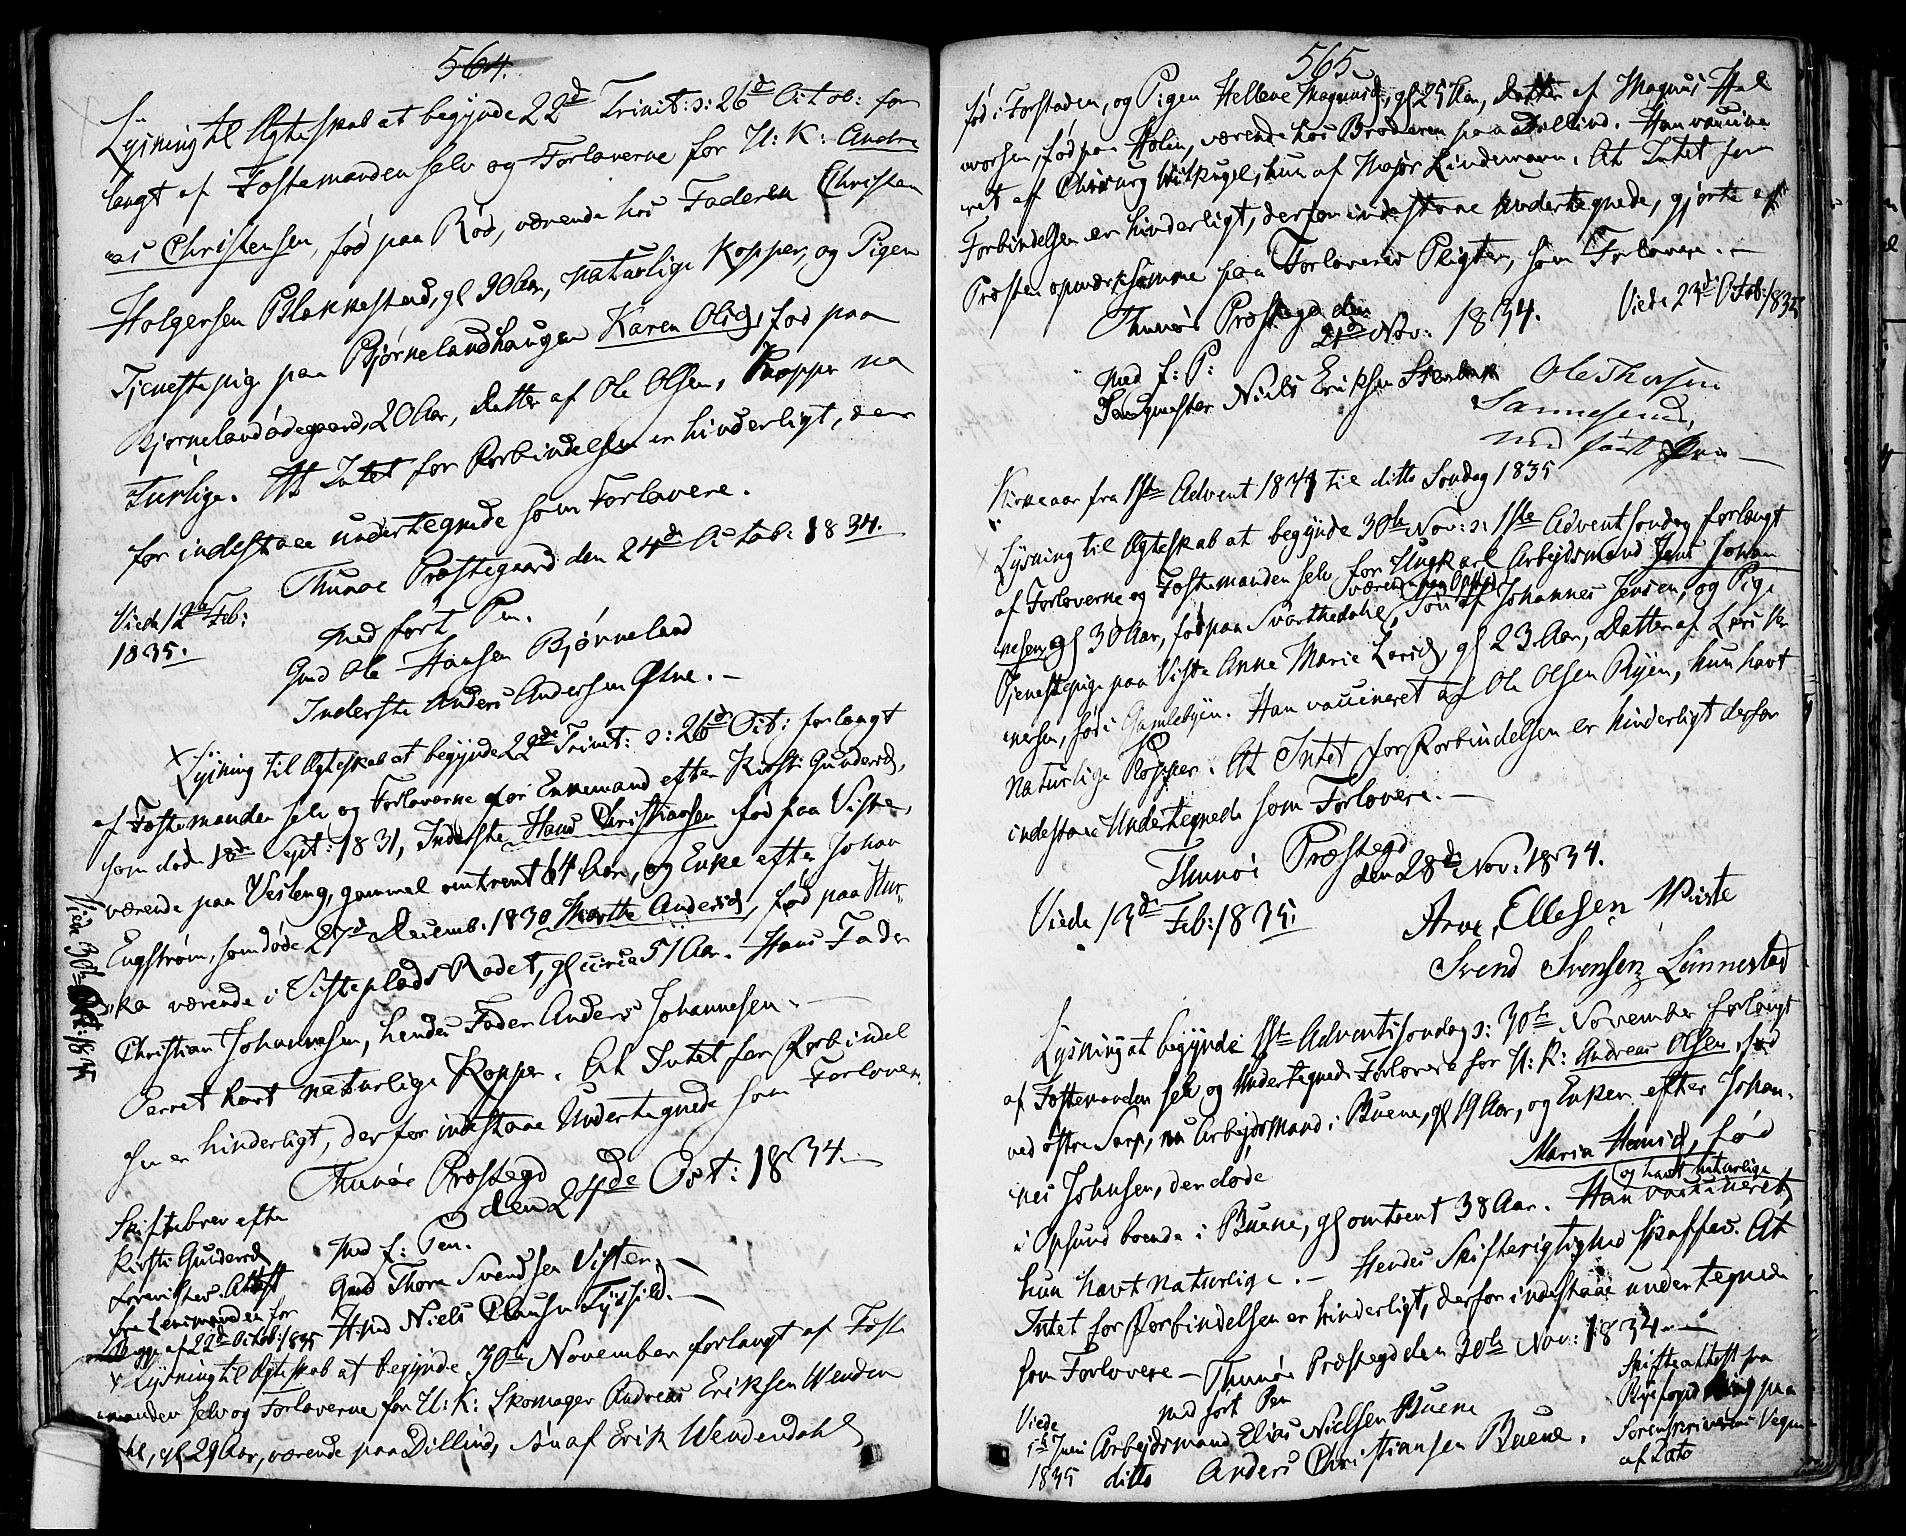 564.
Lysning til Ægteskab at begynde 22d Trinit: ɔ: 26d Octob: for
langt af Fæstemanden selv og Forloverne for U: K: Andre
as Christensen, fød paa Rød, værende hos Faderen Christen
Holgersen Blakkestad, gl 30 Aar, naturlige Kopper, og Pigen
Tjenestepige paa Bjørnelandhaugen Karen Olsd, fød paa
Bjørnelandødegaard, 20 Aar, Datter af Ole Olsen, Kopper na
turlige. At Intet for Forbindelsen er hinderligt, der
for indestaae undertegnede som Forlovere.
Thunøe Præstegaard den 24de Octob: 1834.
Viede 12te Feb:
1835.
med ført Pen.
Gmd Ole Hansen Bjørneland
Inderste Anders Andersen Øtne. –
X Lysning til Ægteskab at begynde 22de Trinit: ɔ: 26d Oct: forlangt
af Fæstemanden selv og Forloverne for Enkemand efter Kirsti Gundersd,
som døde 18de Sept: 1831, Inderste Hans Christiansen fød paa Viste,
værende paa Visteng, gammel omtrent 64 Aar, og Enke efter Johan
Engstrøm, som døde 27de Decemb. 1830 Marthe Andersd, fød paa Hur,
værende i Visteplads Rødet, gl circa 51 Aar. Hans Fader
Christian Johannesen, hendes Fader Anders Johannesen. –
Parret havt naturlige Kopper. At Intet for Forbindel
sen er hinderligt, derfor indestaae Undertegnede som Forlovere.
Viede 30te Oct: 1835
Thunøe Præstegd
den 24de Oct: 1834.
Skiftebrev efter
Kirsti Gundersd
forevistes. Attest
fra Lensmanden for
af 22d Octob: 1835
med f: Pen.
Gmd Thore Svendsen Vister. –
Hmd Niels Clausen –
X Lysning til Ægteskab at begynde 30te November forlangt af Fæste
manden selv og Forloverne for U: K: Skomager Andreas Eriksen Wenden
dahl, gl 29 Aar, værende paa Dillind, Søn af Erik Wendendahl
565
fød i Forstaden, og Pigen Hellene Magnusd, gl 25 Aar, Datter af Magnus Hal
vorsen, fød paa Holen, værende hos Broderen paa Dillind. Han vaccine
ret af Chirurg Wilkugel, hun af Major Lindemann. At Intet for
Forbindelsen er hinderligt, derfor indestaae Undertegnede, gjorte af
Præsten opmærksomme paa Forloveres Pligter, som Forlovere. –
Thunøe Præstegd den
21de Nov: 1834.
Viede 23de Octob: 1835
med f: P:
Niels Eriksen
Ole Thorsen
Sannesund,
med ført Pen –
Kirkeaar fra 1ste Advent 1834 til ditto Søndag 1835
X Lysning til Ægteskab at begynde 30te Nov: ɔ: 1ste Advent søndag forlangt
af Forloverne og Fæstemanden selv for Ungkarl Arbejdsmand Jens Johan
nesen, gl 30 Aar, fød paa Svarthedahl, Søn af Johannes Jensen, og Pige
Tjenestepige paa Viste Anne Marie Larsd, gl 23 Aar, Datter af Lars
nersen, fød i Gamlebyen. Han vaccineret af Ole Olsen Ryen, hun havt
naturlige Kopper. At Intet for Forbindelsen er hinderligt derfor
indestaae Undertegnede som Forlovere. –
Thunøe Præstegd
den 28de Nov: 1834.
Viede 13de Feb: 1835.
Arne Ellesen Wiste
Svend Svensen Lunnestad
Lysning at begynde 1ste Advents søndag ɔ: 30te November forlangt
af Fæstemanden selv og Undertegnede Forlovere for U: K: Andreas Olsen, fød
ved østre Sarp, nu Arbejdsmand i Buene, gl 19 Aar, og Enken efter Johan
nes Johnsen, der døde
Maria Hansd, fød
i Opsund boende i Buene, gl omtrent 38 Aar. Han vaccineret
og havt naturlige
hun havt naturlige. – Hendes Skifterigtighed skaffes. At
Intet for Forbindelsen er hinderligt, derfor indestaae undertegnede
som Forlovere – Thunøe Præstegd den 30te Nov: 1834. –
med ført Pen
Viede
1ste Juni
1835
Arbejdsmand Elias Nielsen Buene
ditto Anders Christiansen Buene.
Skifteattest fra
paa
Sorenskriverens Vegne
af Dato